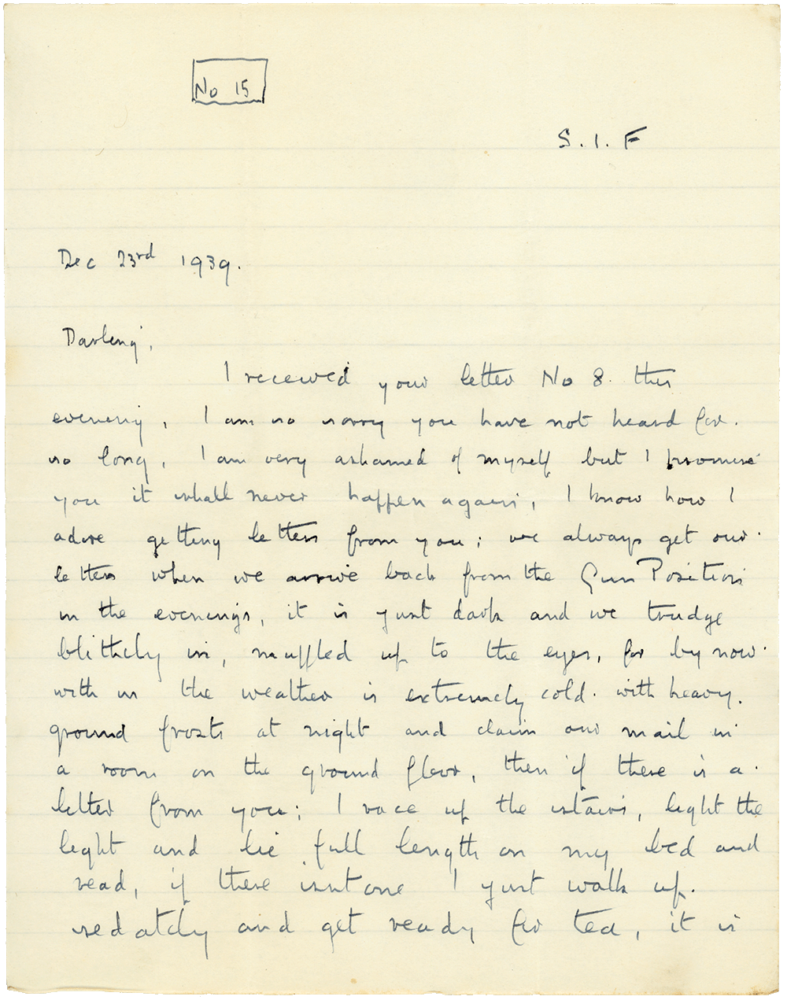 No 15
S.I.F
Dec 23rd 1939.
Darling,
I received your letter No 8. this
evening, I am so sorry you have not heard for.
so long, I am very ashamed of myself but I promise
you it shall never happen again, I know how I
adore getting letters from you; we always get our.
letters when we arrive back from the Gun Position
in the evenings, it is just dark and we trudge
blithely in, muffled up to the eyes, for by now.
with us the weather is extremely cold. with heavy.
ground frosts at night and claim our mail in
a room on the ground floor, then if there is a.
letter from you; I race up the stairs, light the
light and lie full length on my bed and
read, if there isnt one I just walk up.
sedately and get ready for tea, it is